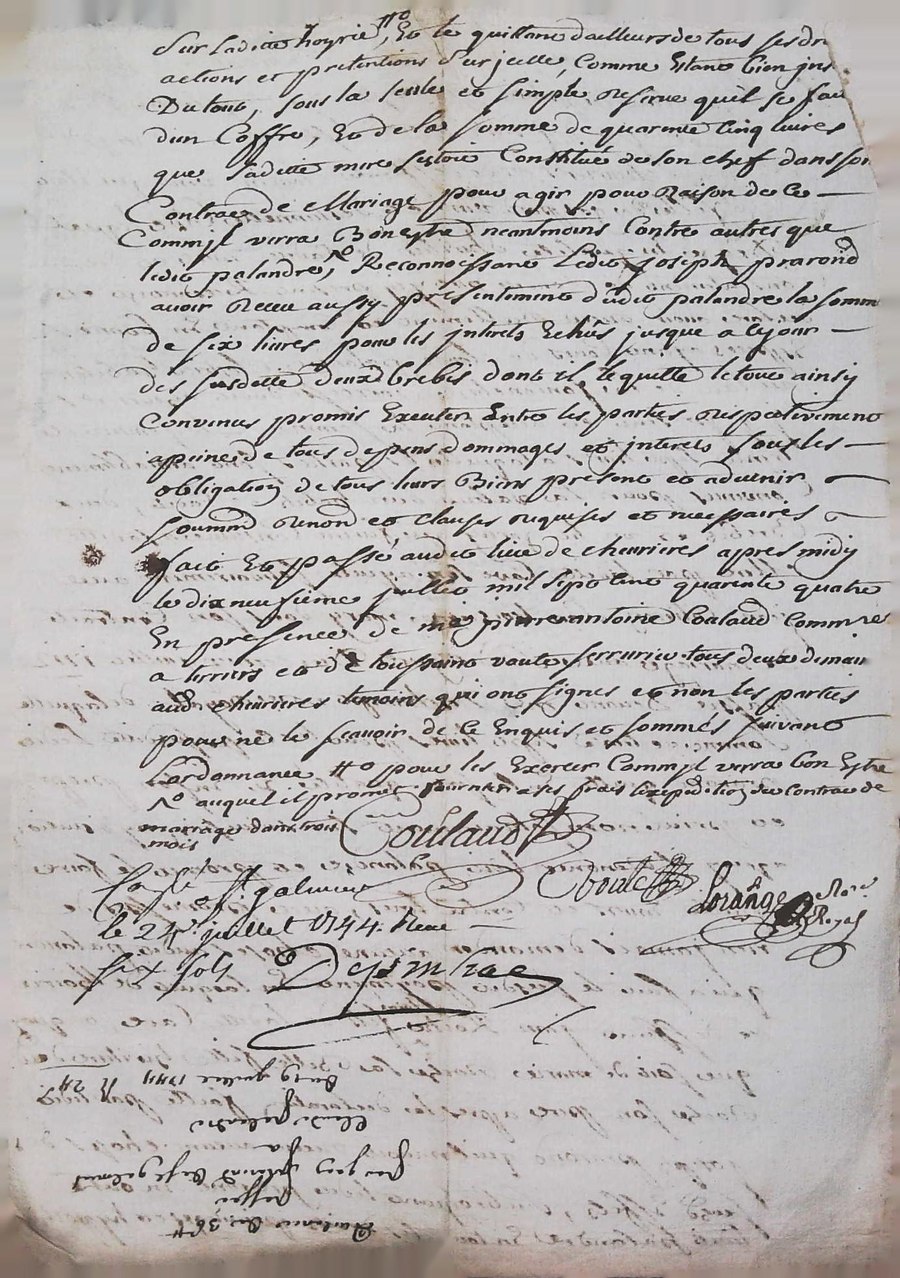 Sur laditte hoyrie, Et le quittant dailleurs de tous ses dr
actions et pretentions Sur jcelle, Comme Etant bien jns
Du tout, sous la seule et simple reserve quil se fait
dun Coffre, Et de la somme de quarente cinq livres
que laditte mere sestoit Constitué de son chef dans son
Contract de Mariage pour agir pour Raison de ce
Commjl verra Bon estre neantmoins Contre autres que
ledit palandre, Reconnoissant Ledit joseph prarond
avoir Receu aussy presentement dudit palandre la somme
de six livres pour les jnterets Echus jusque a ce jour
des susdittes deux brebis dont il le quitte le tout ainsy
Convenus promis Executer Entre les parties respectivement
a peine de tous depens dommages et jnterets sous les
obligation de tous leurs Biens present et advenir
soummn renon et clauses requises et necessaires
fait Et passé audit lieu de cheurieres apres midy
le dix neufsieme juillet mil sept cent quarente quatre
En presence de me pierre antoine Coulaud Commre
a terriers et de toussaint voute serrurier tous deux demeu
aud cheurieres temoins qui ont signes et non les parties
pour ne le scavoir de ce Enquis et sommés suivant
Lordonnance ‡o pour les Exercer Commjl verra bon Estre
no auquel il promet fournir a ses frais lexpedition du contrac de
mariage dans trois
mois
Coulaud
Voute
Lorange Nore
Royal
Conlé a St galmier
le 24e juillet 1744. Receu
six sols
Du 19 juillet 1744
Claude palandre
joseph prarond
Quittance de 36 ‡